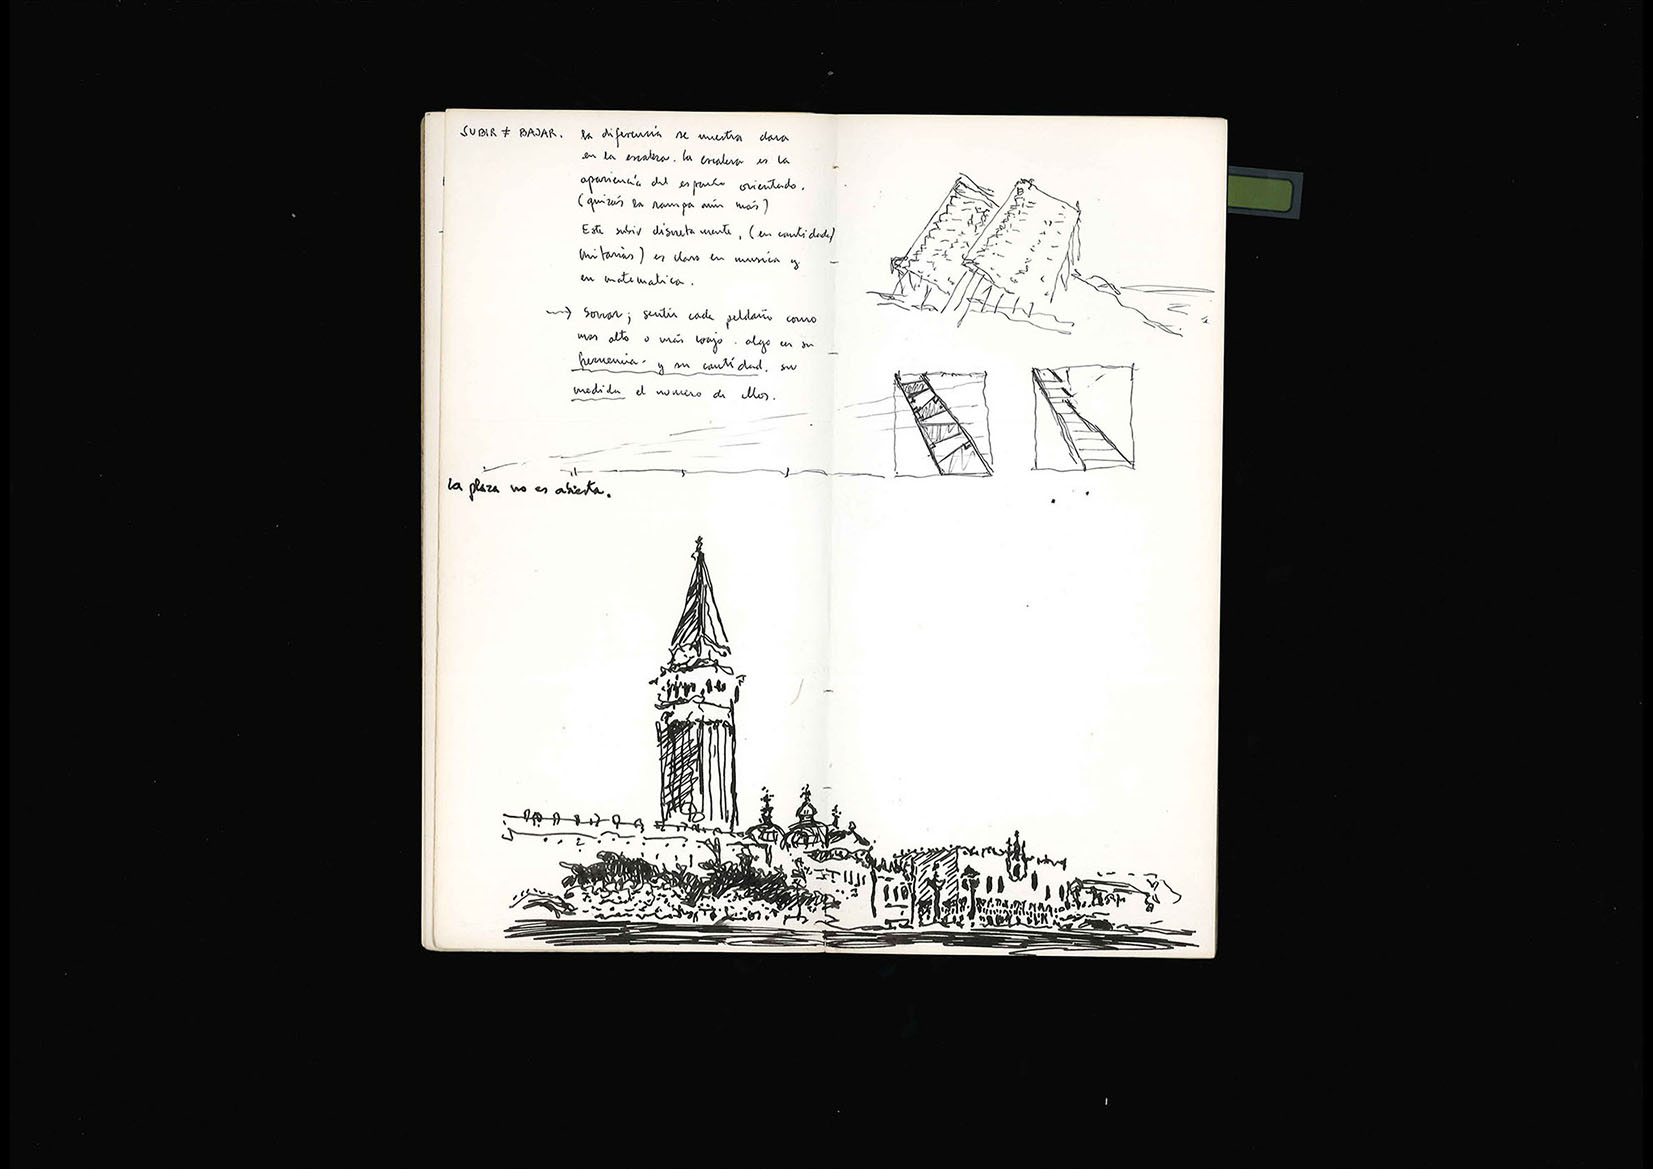 SUBIR ≠ BAJAR. la diferencia se muestra clara
en la escalera. la escalera es la
apariencia del espacio orientado.
(quizás la rampa aún más)
Este subir discretamente, (en cantidades
unitarias) es claro en musica y
en matematica.
→ Sonar; sentir cada peldaño como
mas alto o más bajo. algo en su
frecuencia y su cantidad. su
medida el número de ellos.
La plaza no es abierta.